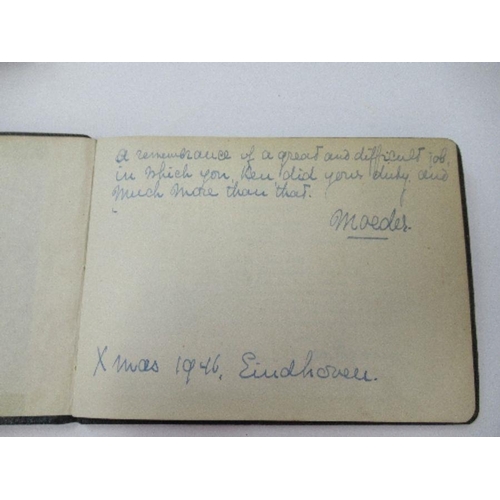 A remembrance of a great and difficult job,
in which you, Ken did your duty and
much more than that.
Moeder.
Xmas 1946, Eindhoven.